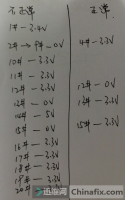 不正常
1# — 3.4V
2# → 9# — 0V
10# — 3.3V
11# — 3.3V
12# — 3.3V
13# — 0V
14# — 5V
15# — 0V
16# — 3.3V
17# — 3.3V
18# — 3.3V
19# — 3.3V
20#
正常
4# — 3.3V
12# — 0V
13# — 3.3V
15# — 3.3V
迅维网
Chinafix.com